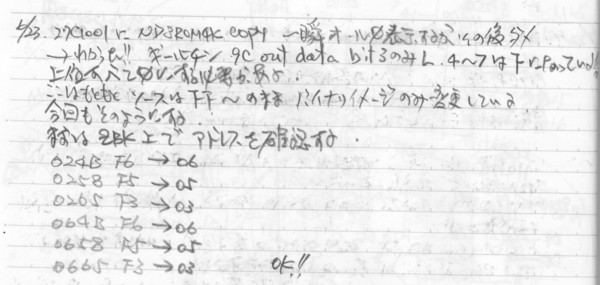 6/23. 27C1001に ND3ROM4K copy 一瞬オール0表示するが、その後ダメ
→わかった!! ギールテン 9C out data bit3のみL. 4〜7は下にFのっている!!
上位すべて0にする必要がある
ここはもともとソースは下下〜のまま バイナリイメージのみ変更している
今回もそのようにする
まずはZBK上でアドレスを確認する.
024B F6 → 06
0258 F5 → 05
0265 F3 → 03
064B F6 → 06
0658 F5 → 05
0665 F3 → 03 OK!!